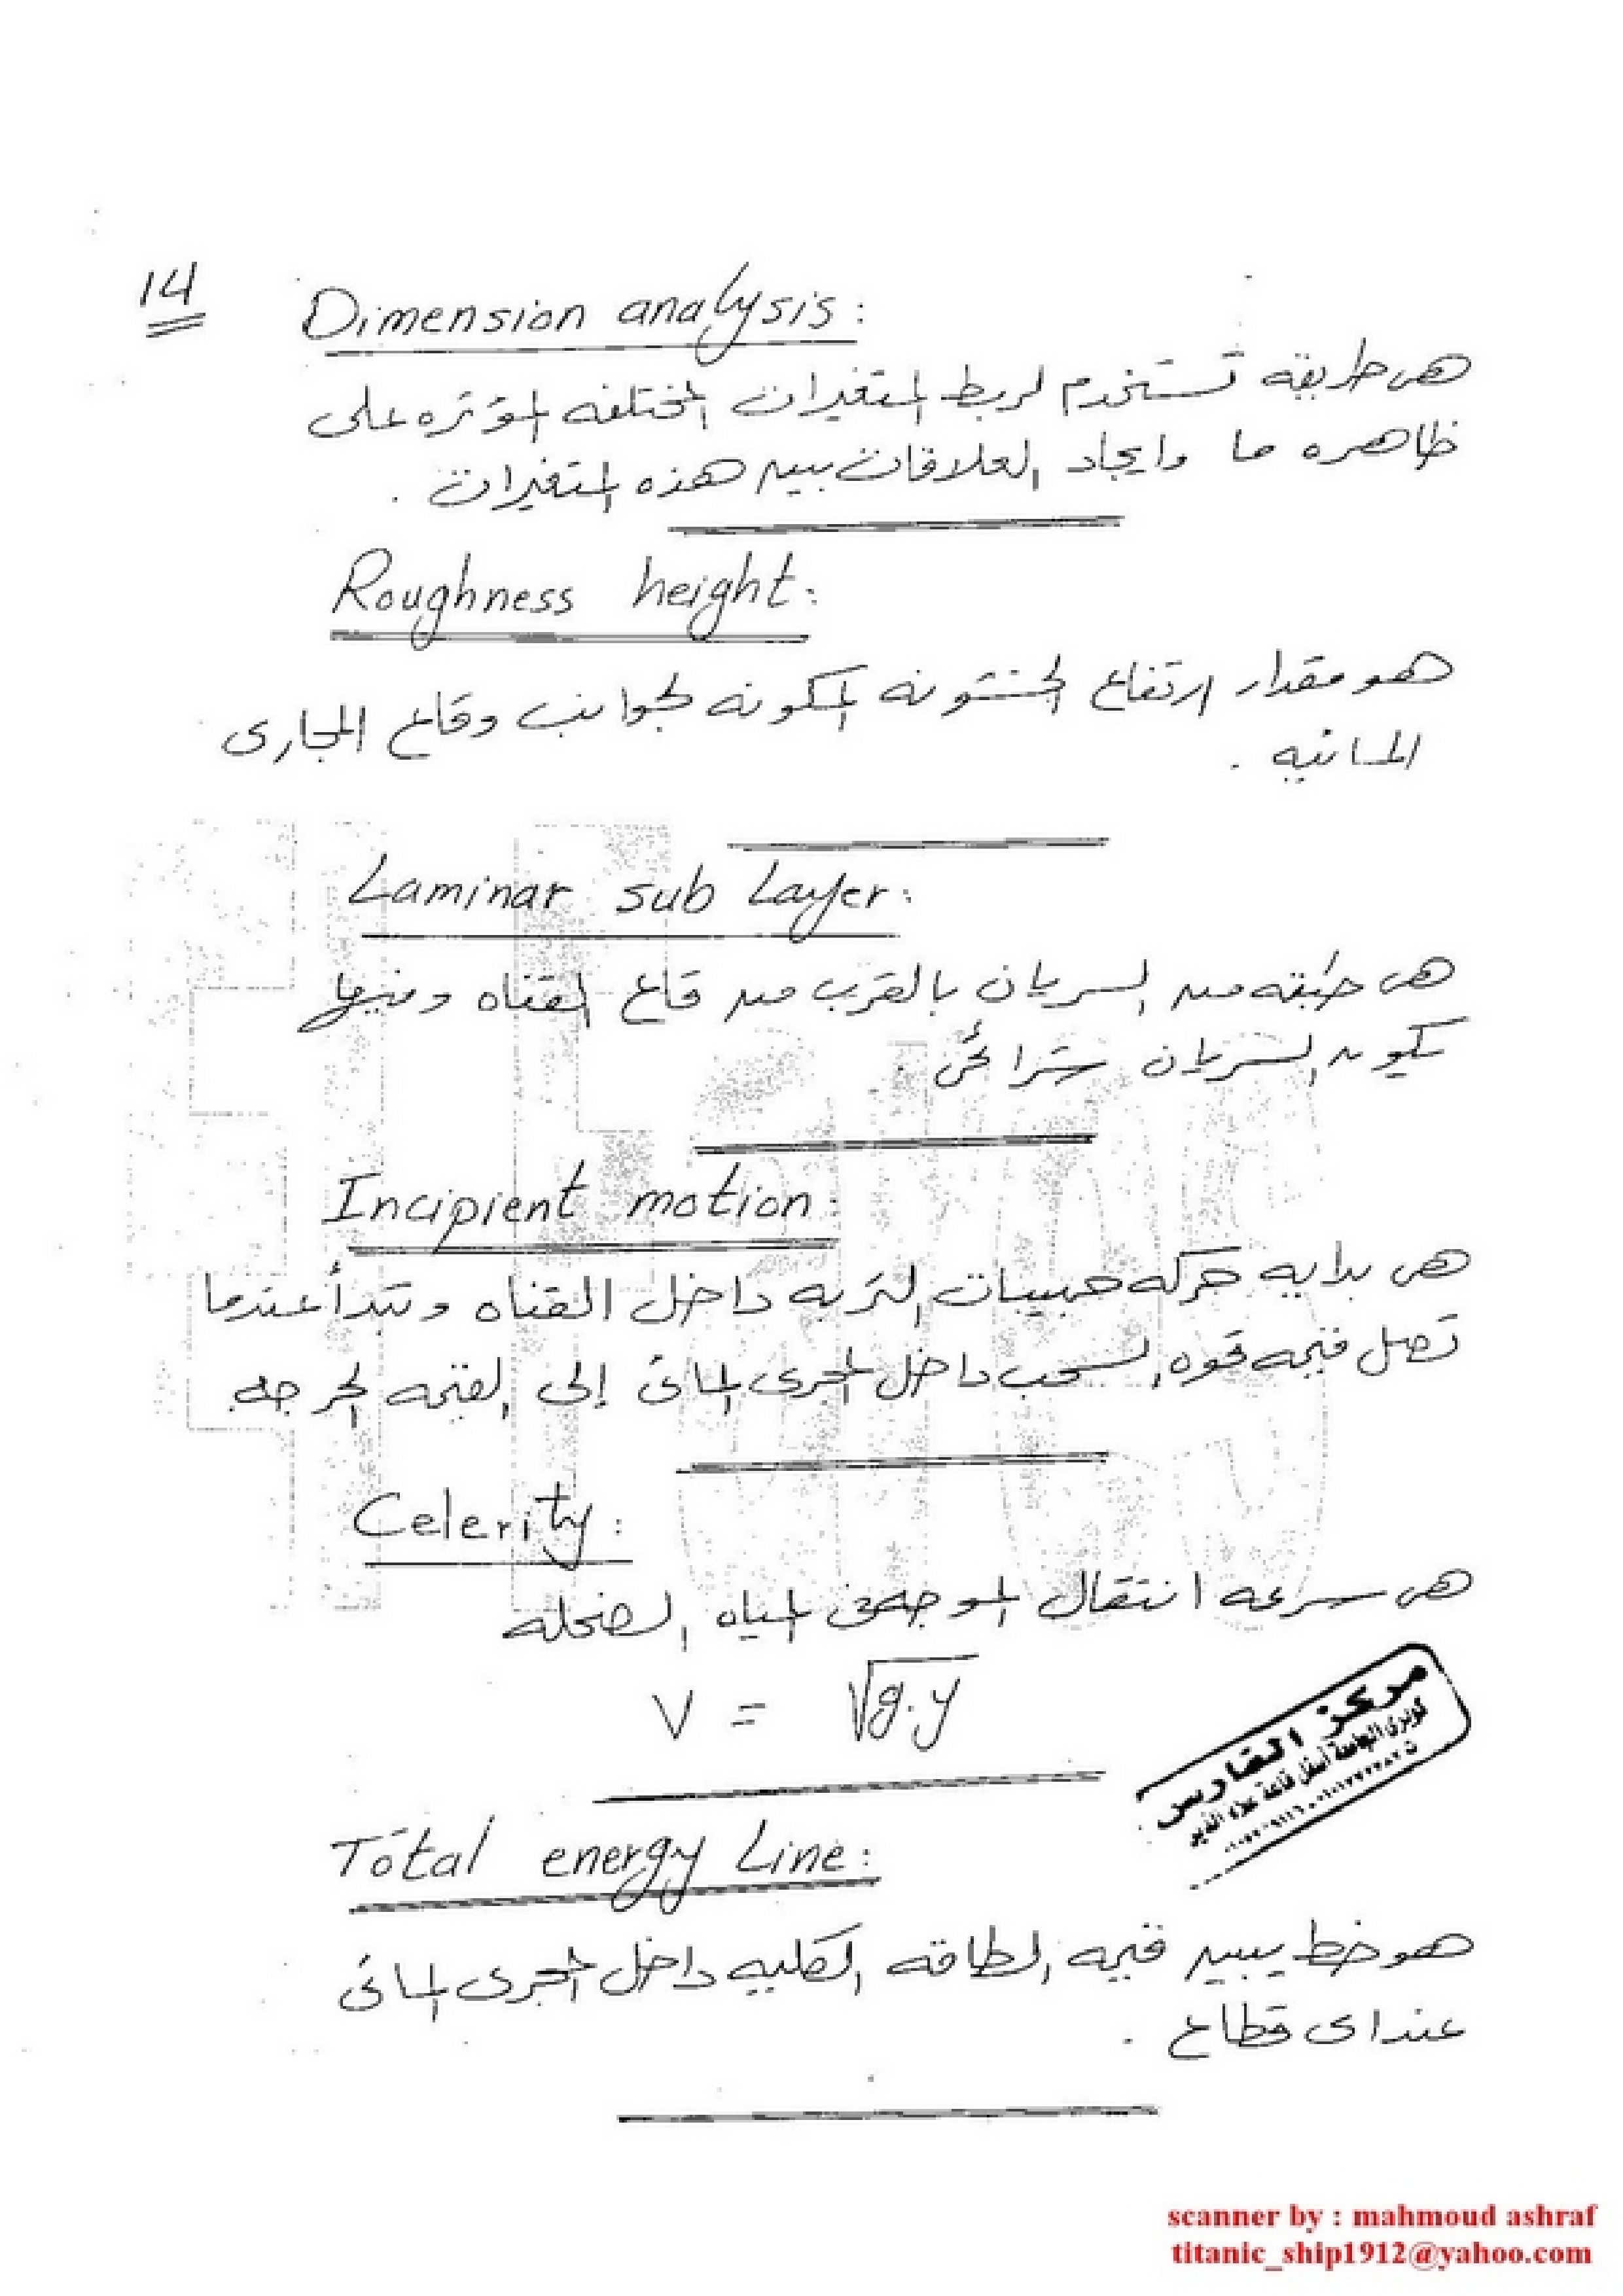 14
Dimension analysis:
هى طريقه تستخدم لربط المتغيرات المختلفه المؤثره على
ظاهره ما وايجاد العلاقات بين هذه المتغيرات .
Roughness height:
هو مقدار ارتفاع الخشونه المكونه لجوانب وقاع المجارى
المائيه .
Laminar sub Layer:
هى طبقه من السريان بالقرب من قاع القناه وفيها
يكون السريان شرائحى .
Incipient motion:
هى بدايه حركه حبيبات التربه داخل القناه وتبدأ عندما
تصل قيمه قوه السحب داخل المجرى المائى إلى القيمه الحرجه
Celerity:
هى سرعه انتقال الموجه فى المياه الضحله
V = √g.y
مركز الفارس
كوبرى الجامعة أسفل قاعة
Total energy Line:
هو خط يبين قيمه الطاقه الكليه داخل المجرى المائى
عند اى قطاع .
scanner by : mahmoud ashraf
titanic_ship1912@yahoo.com